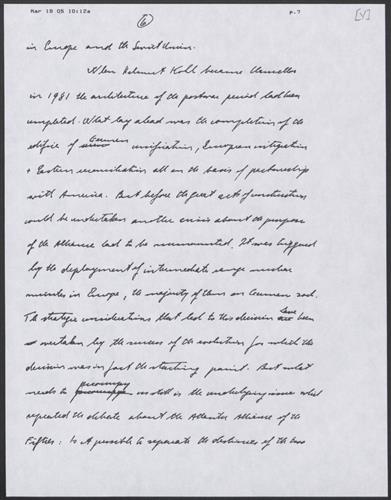 Mar 18 05 10:12a p.7
6 [V]
in Europe and the Soviet Union.
When Helmut Kohl became Chancellor
in 1981 the architecture of the postwar period had been
completed. What lay ahead was the completion of the
edifice of German unification, European integration
+ Eastern reconciliation all on the basis of partnership
with America. But before the great acts of construction
could be undertaken another crisis about the purpose
of the Alliance had to be surmounted. It was triggered
by the deployment of intermediate range nuclear
missiles in Europe, the majority of them on German soil.
The strategic considerations that led to this decision have been
overtaken by the success of the evolution for which the
decision was in fact the starting point. But what
needs to preoccupy us still is the underlying issue which
repeated the debate about the Atlantic Alliance of the
Fifties: Is it possible to separate the destinies of the two